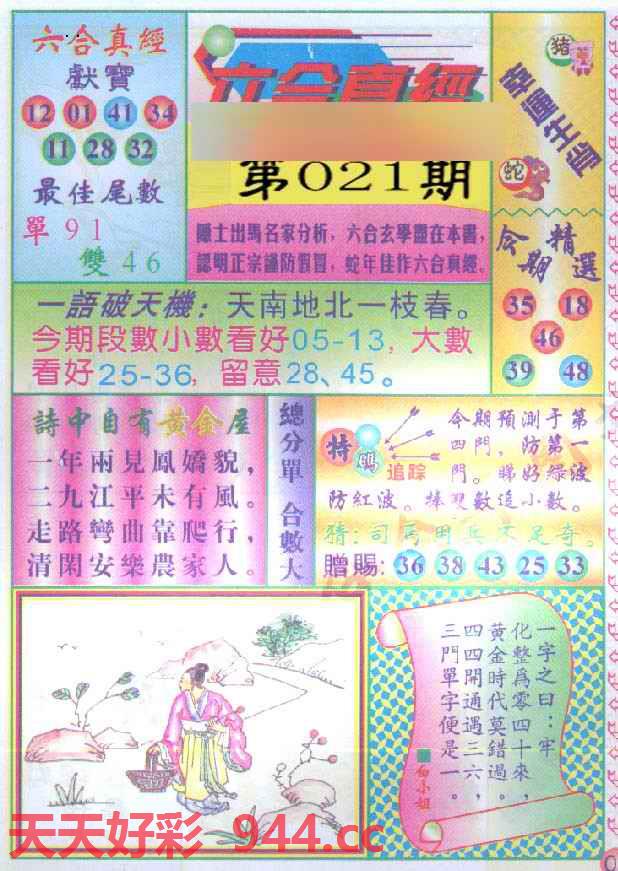 六合真經
獻寶
12 01 41 34
11 28 32
最佳尾數
單91
雙46
六合真經
第021期
隱士出馬名家分析，六合玄學盡在本書，
認明正宗謹防假冒，蛇年佳作六合真經。
豬
蛇
今期精選
35 18
46
39 48
一語破天機：天南地北一枝春。
今期段數小數看好05-13，大數
看好25-36，留意28、45。
詩中自有黃金屋
一年兩見鳳嬌貌，
二九江平未有風。
走路彎曲靠爬行，
清閑安樂農家人。
總分單 合數大
特碼
追踪
今期預測于第
四門，防第一
門。睇好綠波
防紅波。捧雙數追小數。
猜：司馬用兵不足奇。
贈賜：36 38 43 25 33
一字之曰：牢
化整爲零四十來，
黃金時代莫錯過。
四四開通遇三六，
三門單字便是一。
白小姐
天天好彩 944.cc